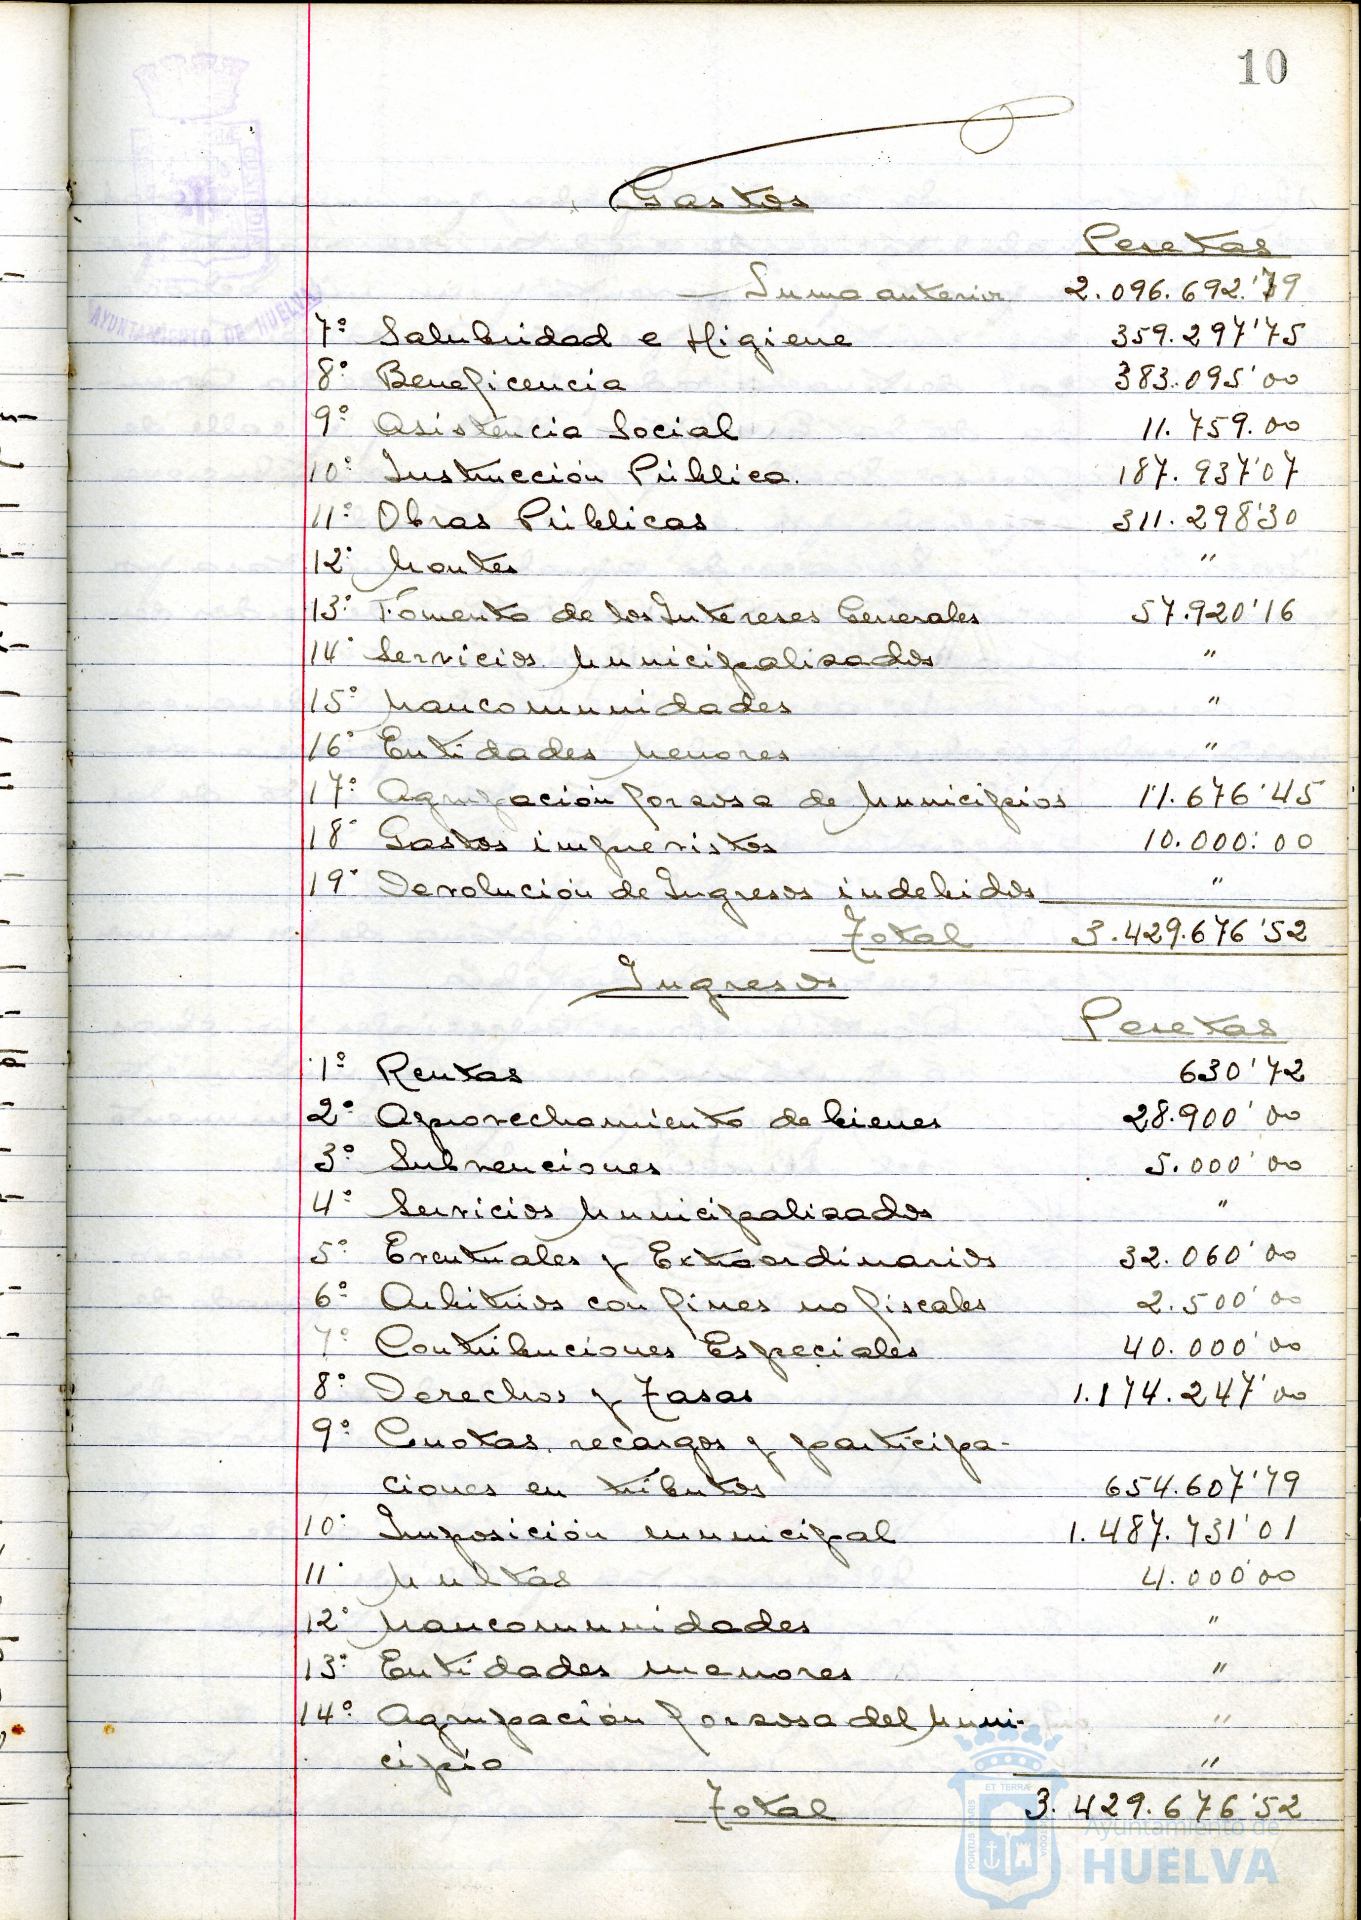 10
Gastos
Pesetas
Suma anterior 2.096.692.'79
7º Salubridad e Higiene 359.297'75
8º Beneficencia 383.095'00
9º Asistencia Social 11.759.00
10º Instrucción Pública. 187.937'07
11º Obras Públicas 311.298'30
12º Montes "
13º Fomento de los Intereses Generales 57.920'16
14º Servicios Municipalisados "
15º Mancomunidades "
16º Entidades Menores "
17º Agrupación forsosa de Municipios 11.676'45
18º Gastos imprevistos 10.000:00
19º Devolución de Ingresos indebidos "
Total 3.429.676'52
Ingresos
Pesetas
1º Rentas 630'72
2º Aprovechamiento de bienes 28.900'00
3º Subvenciones 5.000'00
4º Servicios Municipalisados "
5º Eventuales y Extraordinarios 32.060'00
6º Arbitrios con fines no fiscales 2.500'00
7º Contribuciones Especiales 40.000'00
8º Derechos y Tasas 1.174.247'00
9º Cuotas, recargos y participa-
ciones en tributos 654.607'79
10º Imposición municipal 1.487.731'01
11º Multas 4.000'00
12º Mancomunidades "
13º Entidades menores "
14º Agrupación forsosa del Muni- "
cipio "
Total 3.429.676'52
AYUNTAMIENTO DE HUELVA
Ayuntamiento de
HUELVA
PORTUS MARIS
ET TERRÆ
CUSTODIA